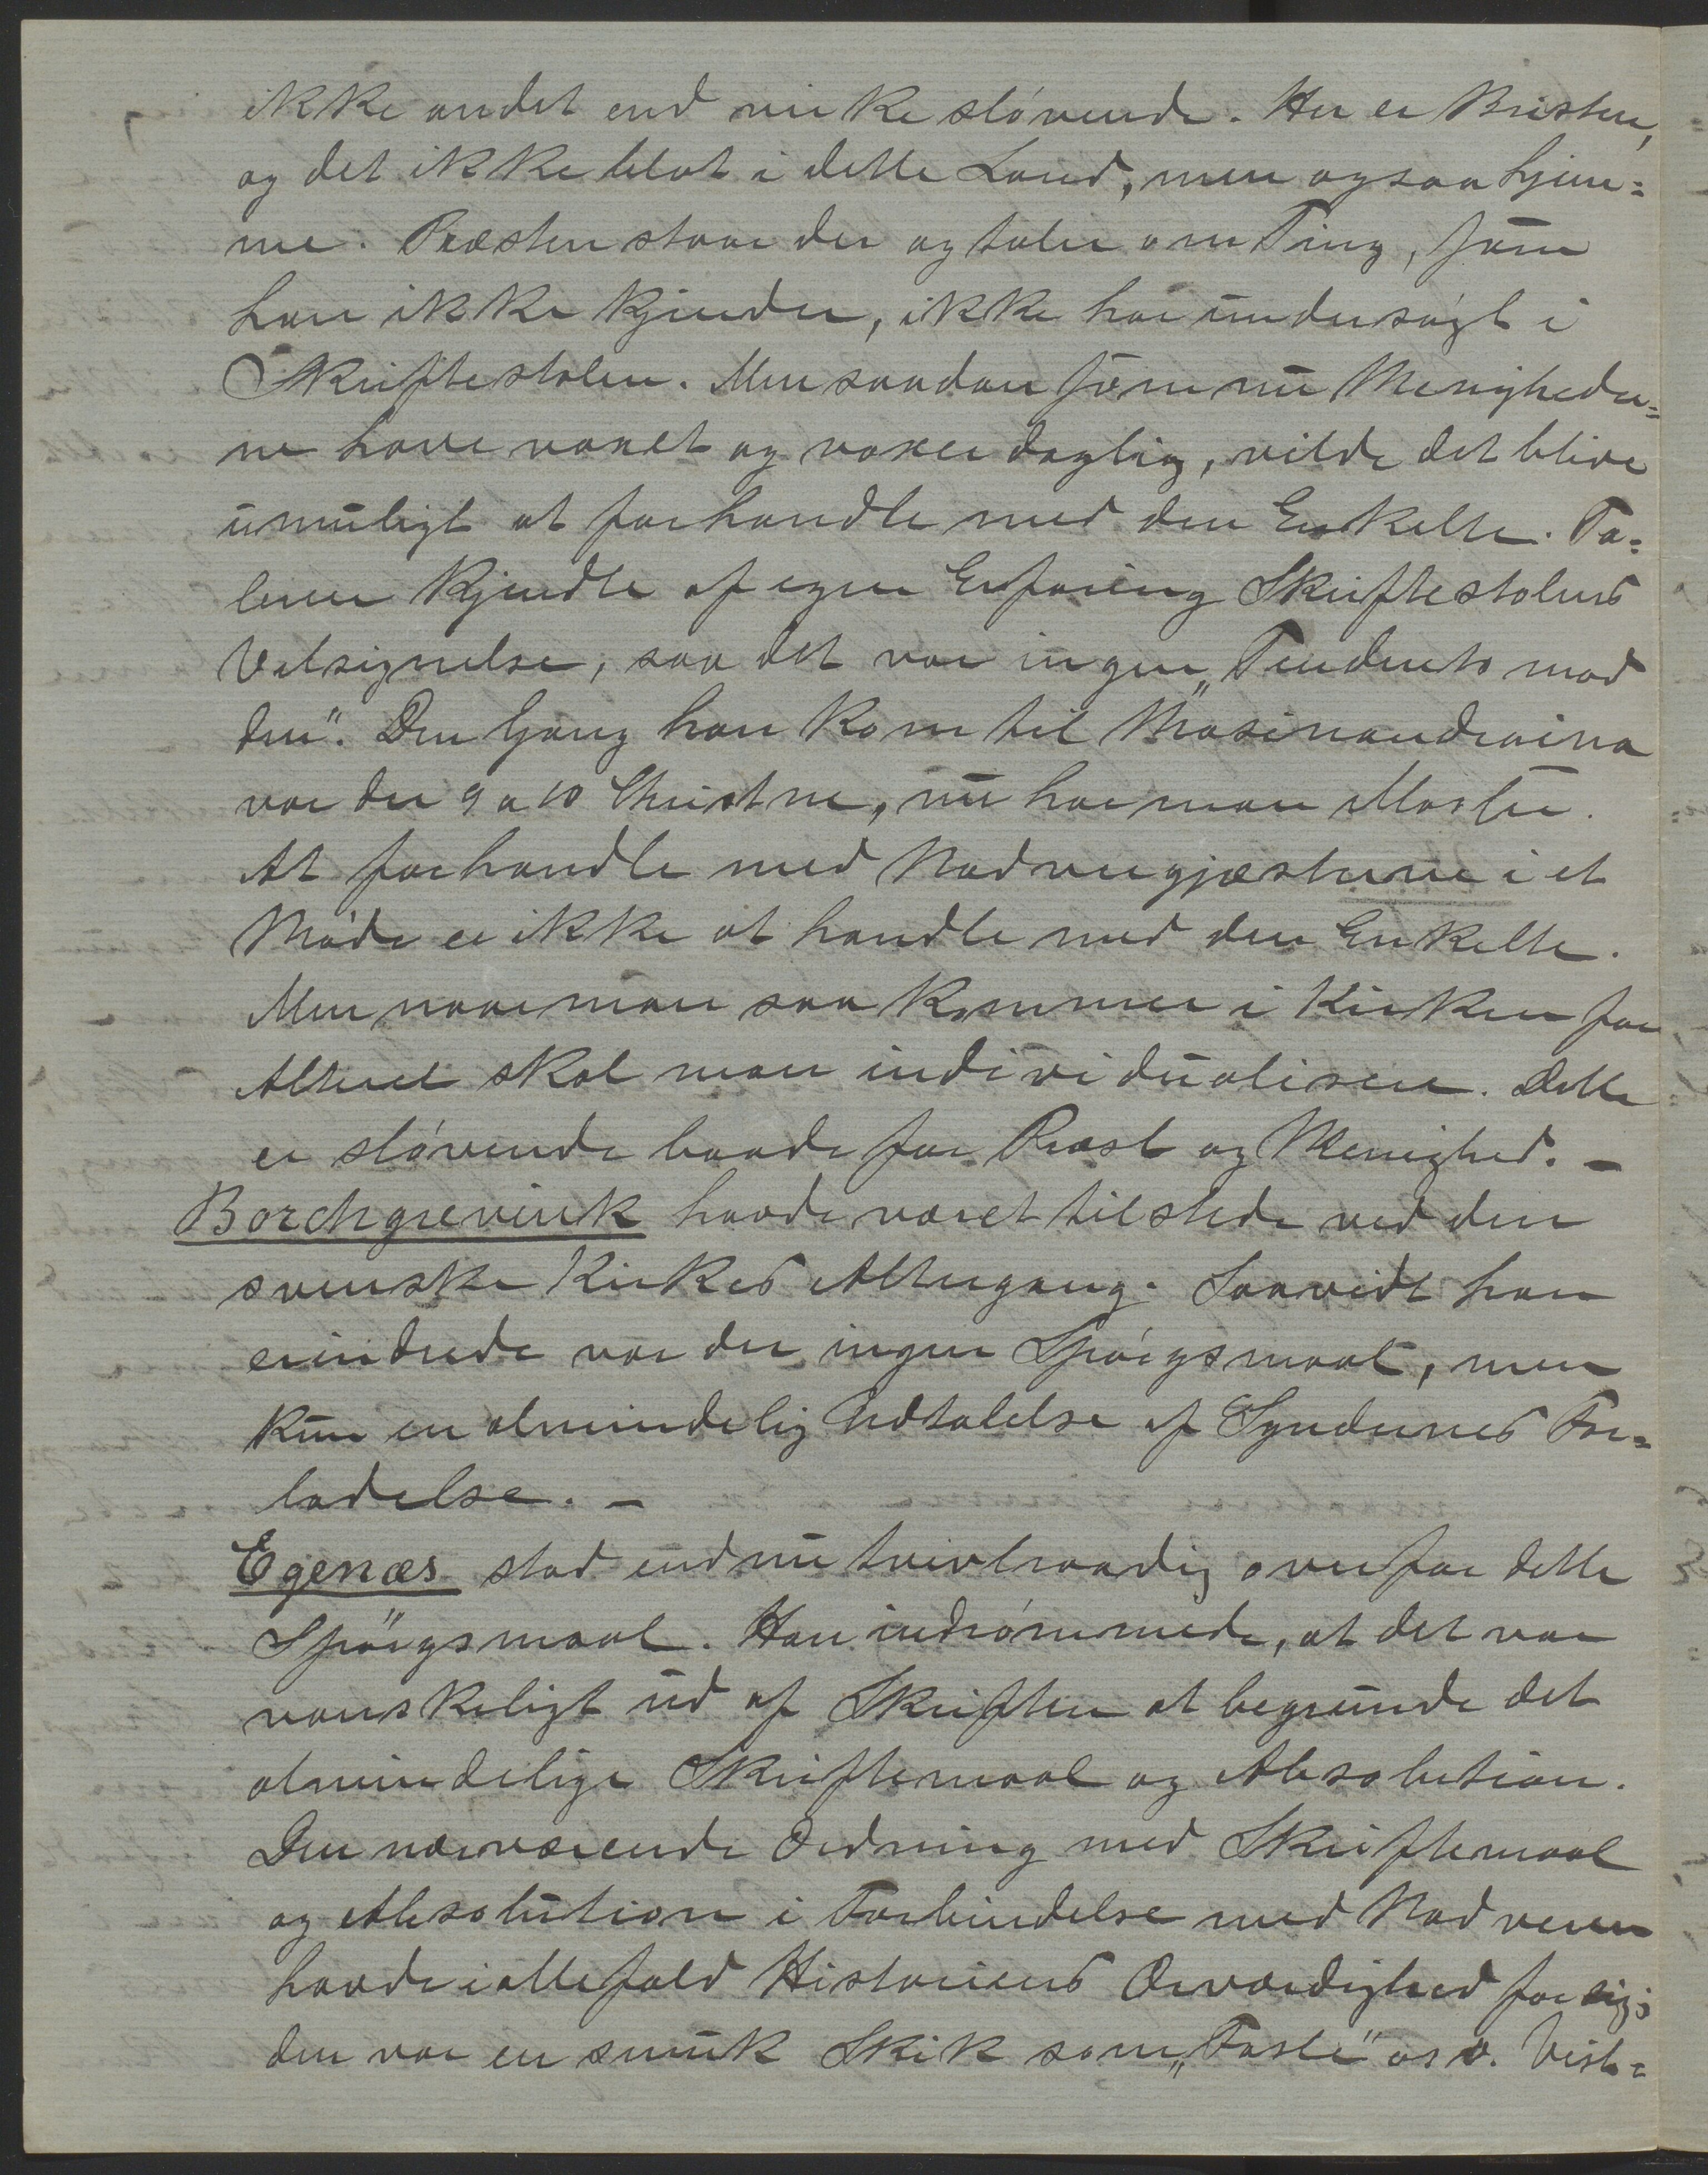 ikke andet end virke slövende. Her er Bristen,
og det ikke blot i dette Land, men ogsaa hjem=
me. Præsten staar der og taler om Ting, som
han ikke kjender, ikke har undersögt i
Skriftestolen. Men saadan som nu Menigheder=
ne have voxet og voxer daglig, vilde det blive
umuligt at forhandle med den Enkelte. Ta=
leren kjendte af egen Erfaring Skriftestolens
Velsignelse, saa det var ingen „Tendents mod
den". Den Gang han kom til Masinandraina
var der 9 a 10 Christne, nu har man Masser.
At forhandle med Nadvergjæsterne i et
Möde er ikke at handle med den Enkelte.
Men naar man saa kommer i Kirken for
Alteret skal man individualisere. Dette
er slövende baade for Præst og Menighed. –
Borchgrevink havde været tilstede ved den
svenske Kirkes Altergang. Saavidt han
erindrede var der ingen Spörgsmaal, men
kun en almindelig Udtalelse af Syndernes For=
ladelse. –
Egenæs stod endnu tvivlraadig overfor dette
Spörgsmaal. Han indrömmede, at det var
vanskeligt ud af Skriften at begrunde det
almindelige Skriftemaal og Absolution.
Den nærværende Ordning med Skriftemaal
og Absolution i Forbindelse med Nadveren
havde i allefald Historiens Ærværdighed for sig;
den var en smuk Skik som „Faste" osv. Vist=